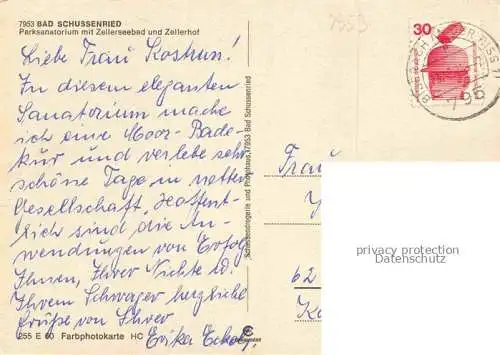 7953 BAD SCHUSSENRIED
Parksanatorium mit Zellerseebad und Zellerhof
7953
30
Liebe Frau Kostrun!
In diesem eleganten
Sanatorium mache
ich eine Moor-Bade-
kur und verlebe sehr
schöne Tage in netter
Gesellschaft. Hoffent-
lich sind die An-
wendungen von Erfolg
Ihnen, Ihrer Nichte u.
Ihrem Schwager herzliche
Grüße von Ihrer
Erika
255 E 60 Farbphotokarte HC
Schlossdrogerie und Photohaus, 7953 Bad Schussenried
Frau
62
privacy protection
Datenschutz